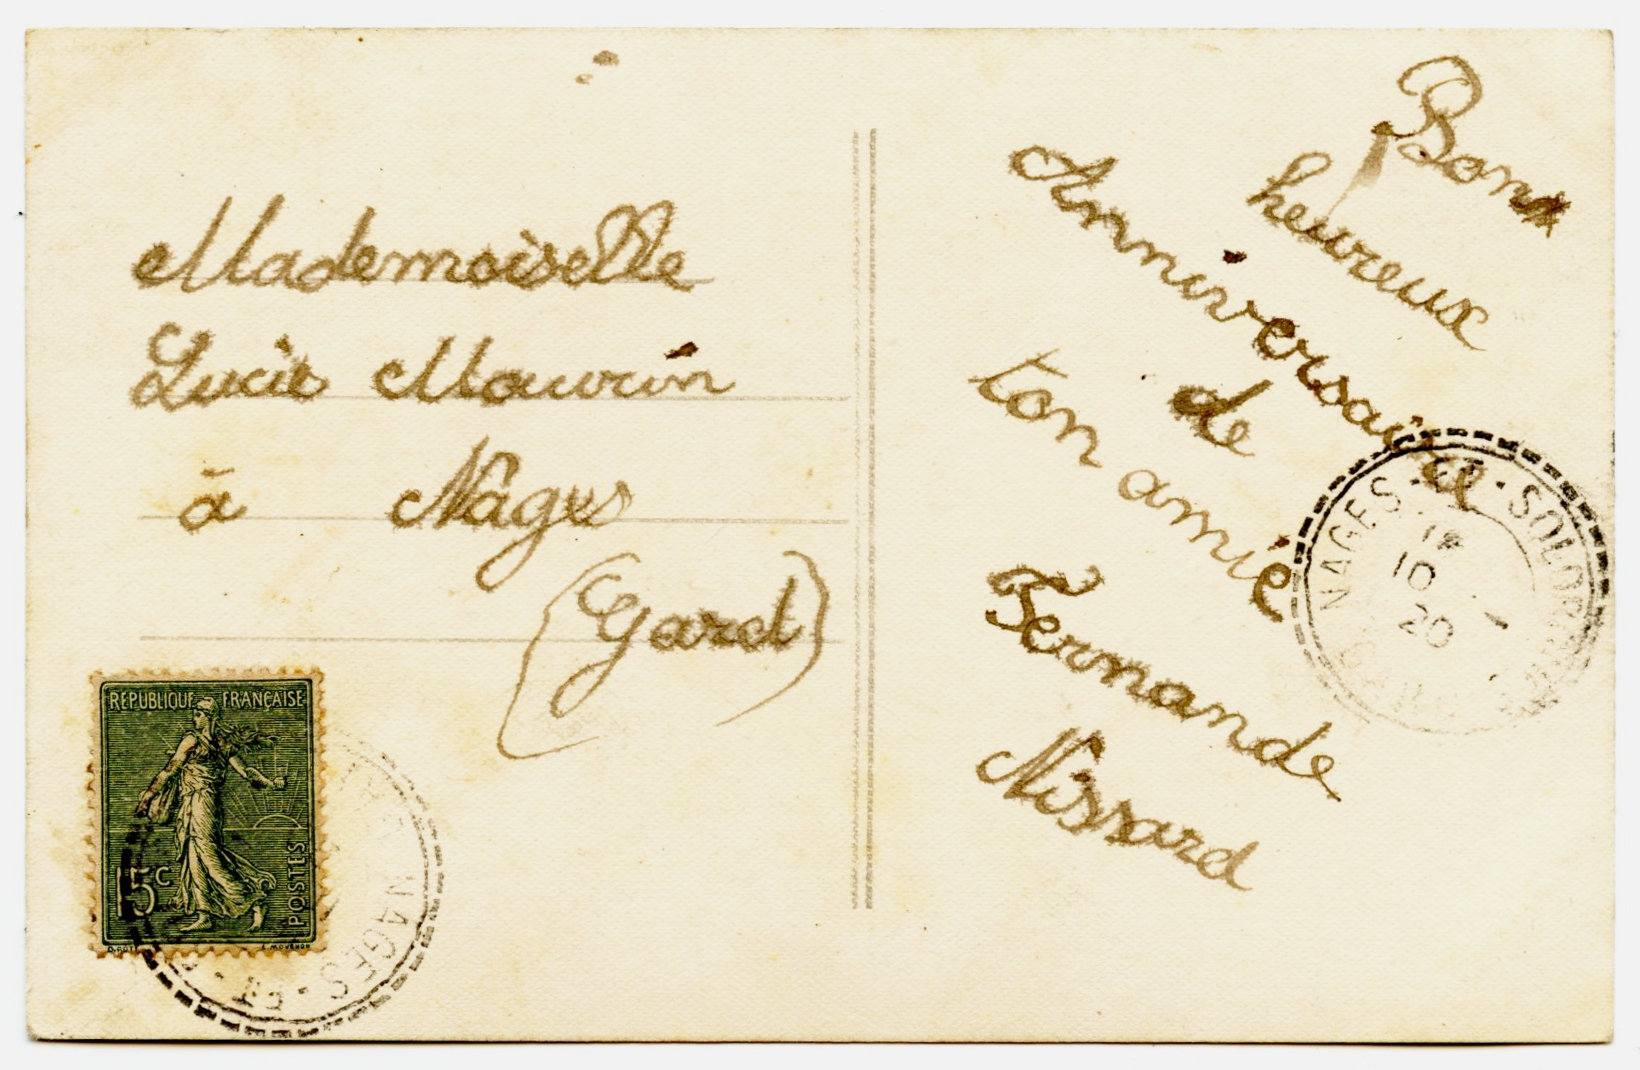 Mademoiselle
Lucie Mourrin
à Nâges
(Gard)
RÉPUBLIQUE FRANÇAISE
15c
POSTES
NAGES · ET ·
Bonne
heureux
Anniversaire
de
ton amie
Fernande
Nissard
NAGES · ET · SOLORGUES
10
20